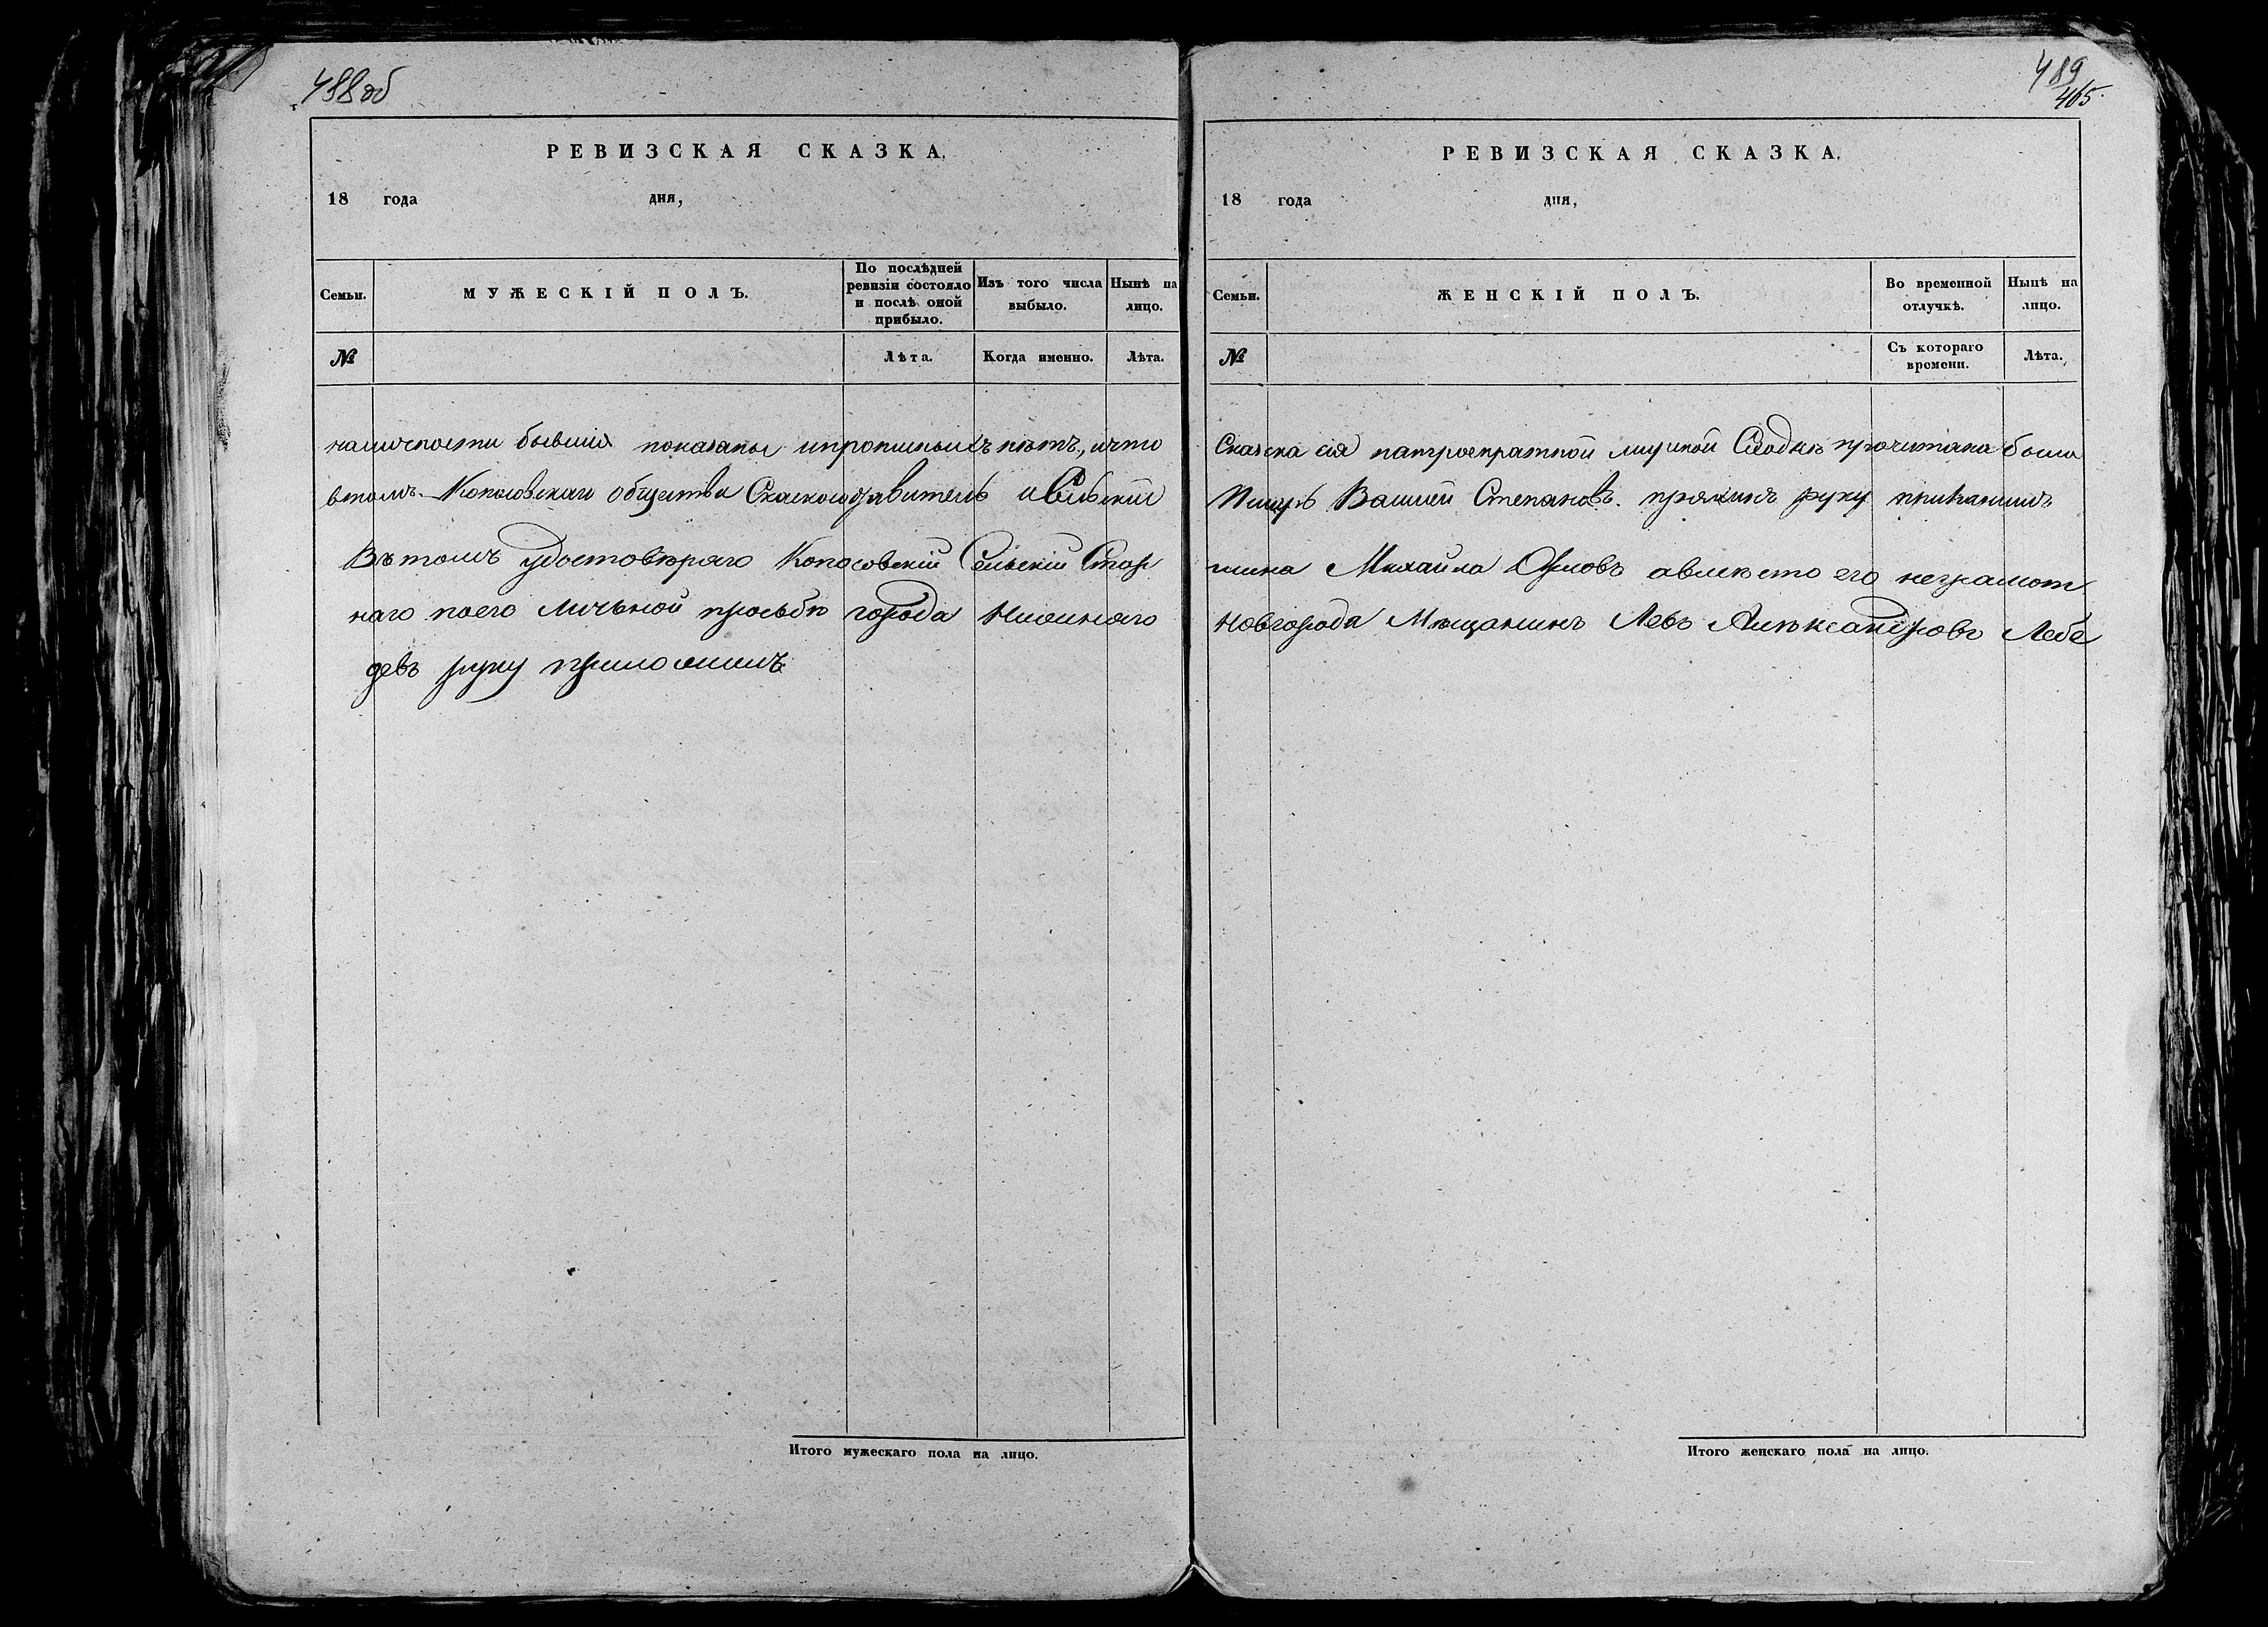 488об
РЕВИЗСКАЯ СКАЗКА.
18 года дня,
Семьи.
МУЖЕСКІЙ ПОЛЪ.
По послѣдней ревизіи состояло и послѣ оной прибыло.
Изъ того числа выбыло.
Нынѣ на лицо.
№
Лѣта.
Когда именно.
Лѣта.
бывшия показаны ипрописныхъ нѣтъ, ичто
втомъ Копосовскаго общества исельскій
Въ томъ удостовѣряю Копосовскій Сельскій Стар
наго поего личьной прозьбѣ города Нижняго
девъ руку приложилъ
Итого мужескаго пола на лицо.
489
465
РЕВИЗСКАЯ СКАЗКА.
18 года дня,
Семьи.
ЖЕНСКІЙ ПОЛЪ.
Во временной отлучкѣ.
Нынѣ на лицо.
№
Съ котораго времени.
Лѣта.
Сказка сія прочитана была
Писарь Василій Степановъ руку
шина Михайла Орловъ авмѣсто его неграмот
Новгорода Мѣщанинъ Левъ Алѣксандровъ Лебе
Итого женскаго пола на лицо.